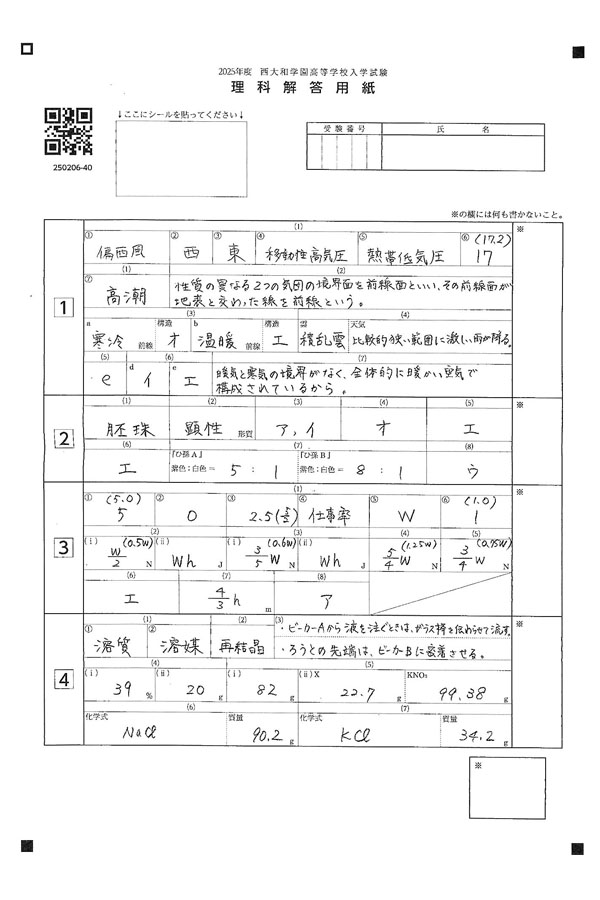 2025年度 西大和学園高等学校入学試験
理科解答用紙
↓ここにシールを貼ってください↓
受験番号 氏名
250206-40
※の欄には何も書かないこと。
1
(1) ※
① 偏西風 ② 西 ③ 東 ④ 移動性高気圧 ⑤ 熱帯低気圧 ⑥ (17.2) 17
(1) (2)
⑦ 高潮 性質の異なる2つの気団の境界面を前線面といい、その前線面が
地表と交わった線を前線という。
(3) (4)
a 寒冷 前線 構造 オ b 温暖 前線 構造 エ 雲 積乱雲 天気 比較的狭い範囲に激しい雨が降る。
(5) (6) (7)
e d イ e エ 暖気と寒気の境界がなく、全体的に暖かい空気で
構成されているから。
2
(1) (2) (3) (4) (5) ※
胚珠 顕性 形質 ア,イ オ エ
(6) (7) (8)
エ 『ひ孫A』 紫色:白色= 5 : 1 『ひ孫B』 紫色:白色= 8 : 1 ウ
3
(1) ※
① (5.0) 5 ② 0 ③ 2.5(5/2) ④ 仕事率 ⑤ W ⑥ (1.0) 1
(2) (3) (4) (5)
(i) W/2 (0.5W) N (ii) Wh J (i) 3/5 W (0.6W) N (ii) Wh J 5/4 W (1.25W) N 3/4 W (0.75W) N
(6) (7) (8)
エ 4/3 h m ア
4
(1) (2) (3) ※
① 溶質 ② 溶媒 再結晶 ・ビーカーAから液を注ぐときは、ガラス棒を伝わらせて流す。
・ろうとの先端は、ビーカーBに密着させる。
(4) (5)
(i) 39 % (ii) 20 g (i) 82 g (ii) X 22.7 g KNO₃ 99.38 g
(6) (7)
化学式 NaCl 質量 90.2 g 化学式 KCl 質量 34.2 g
※